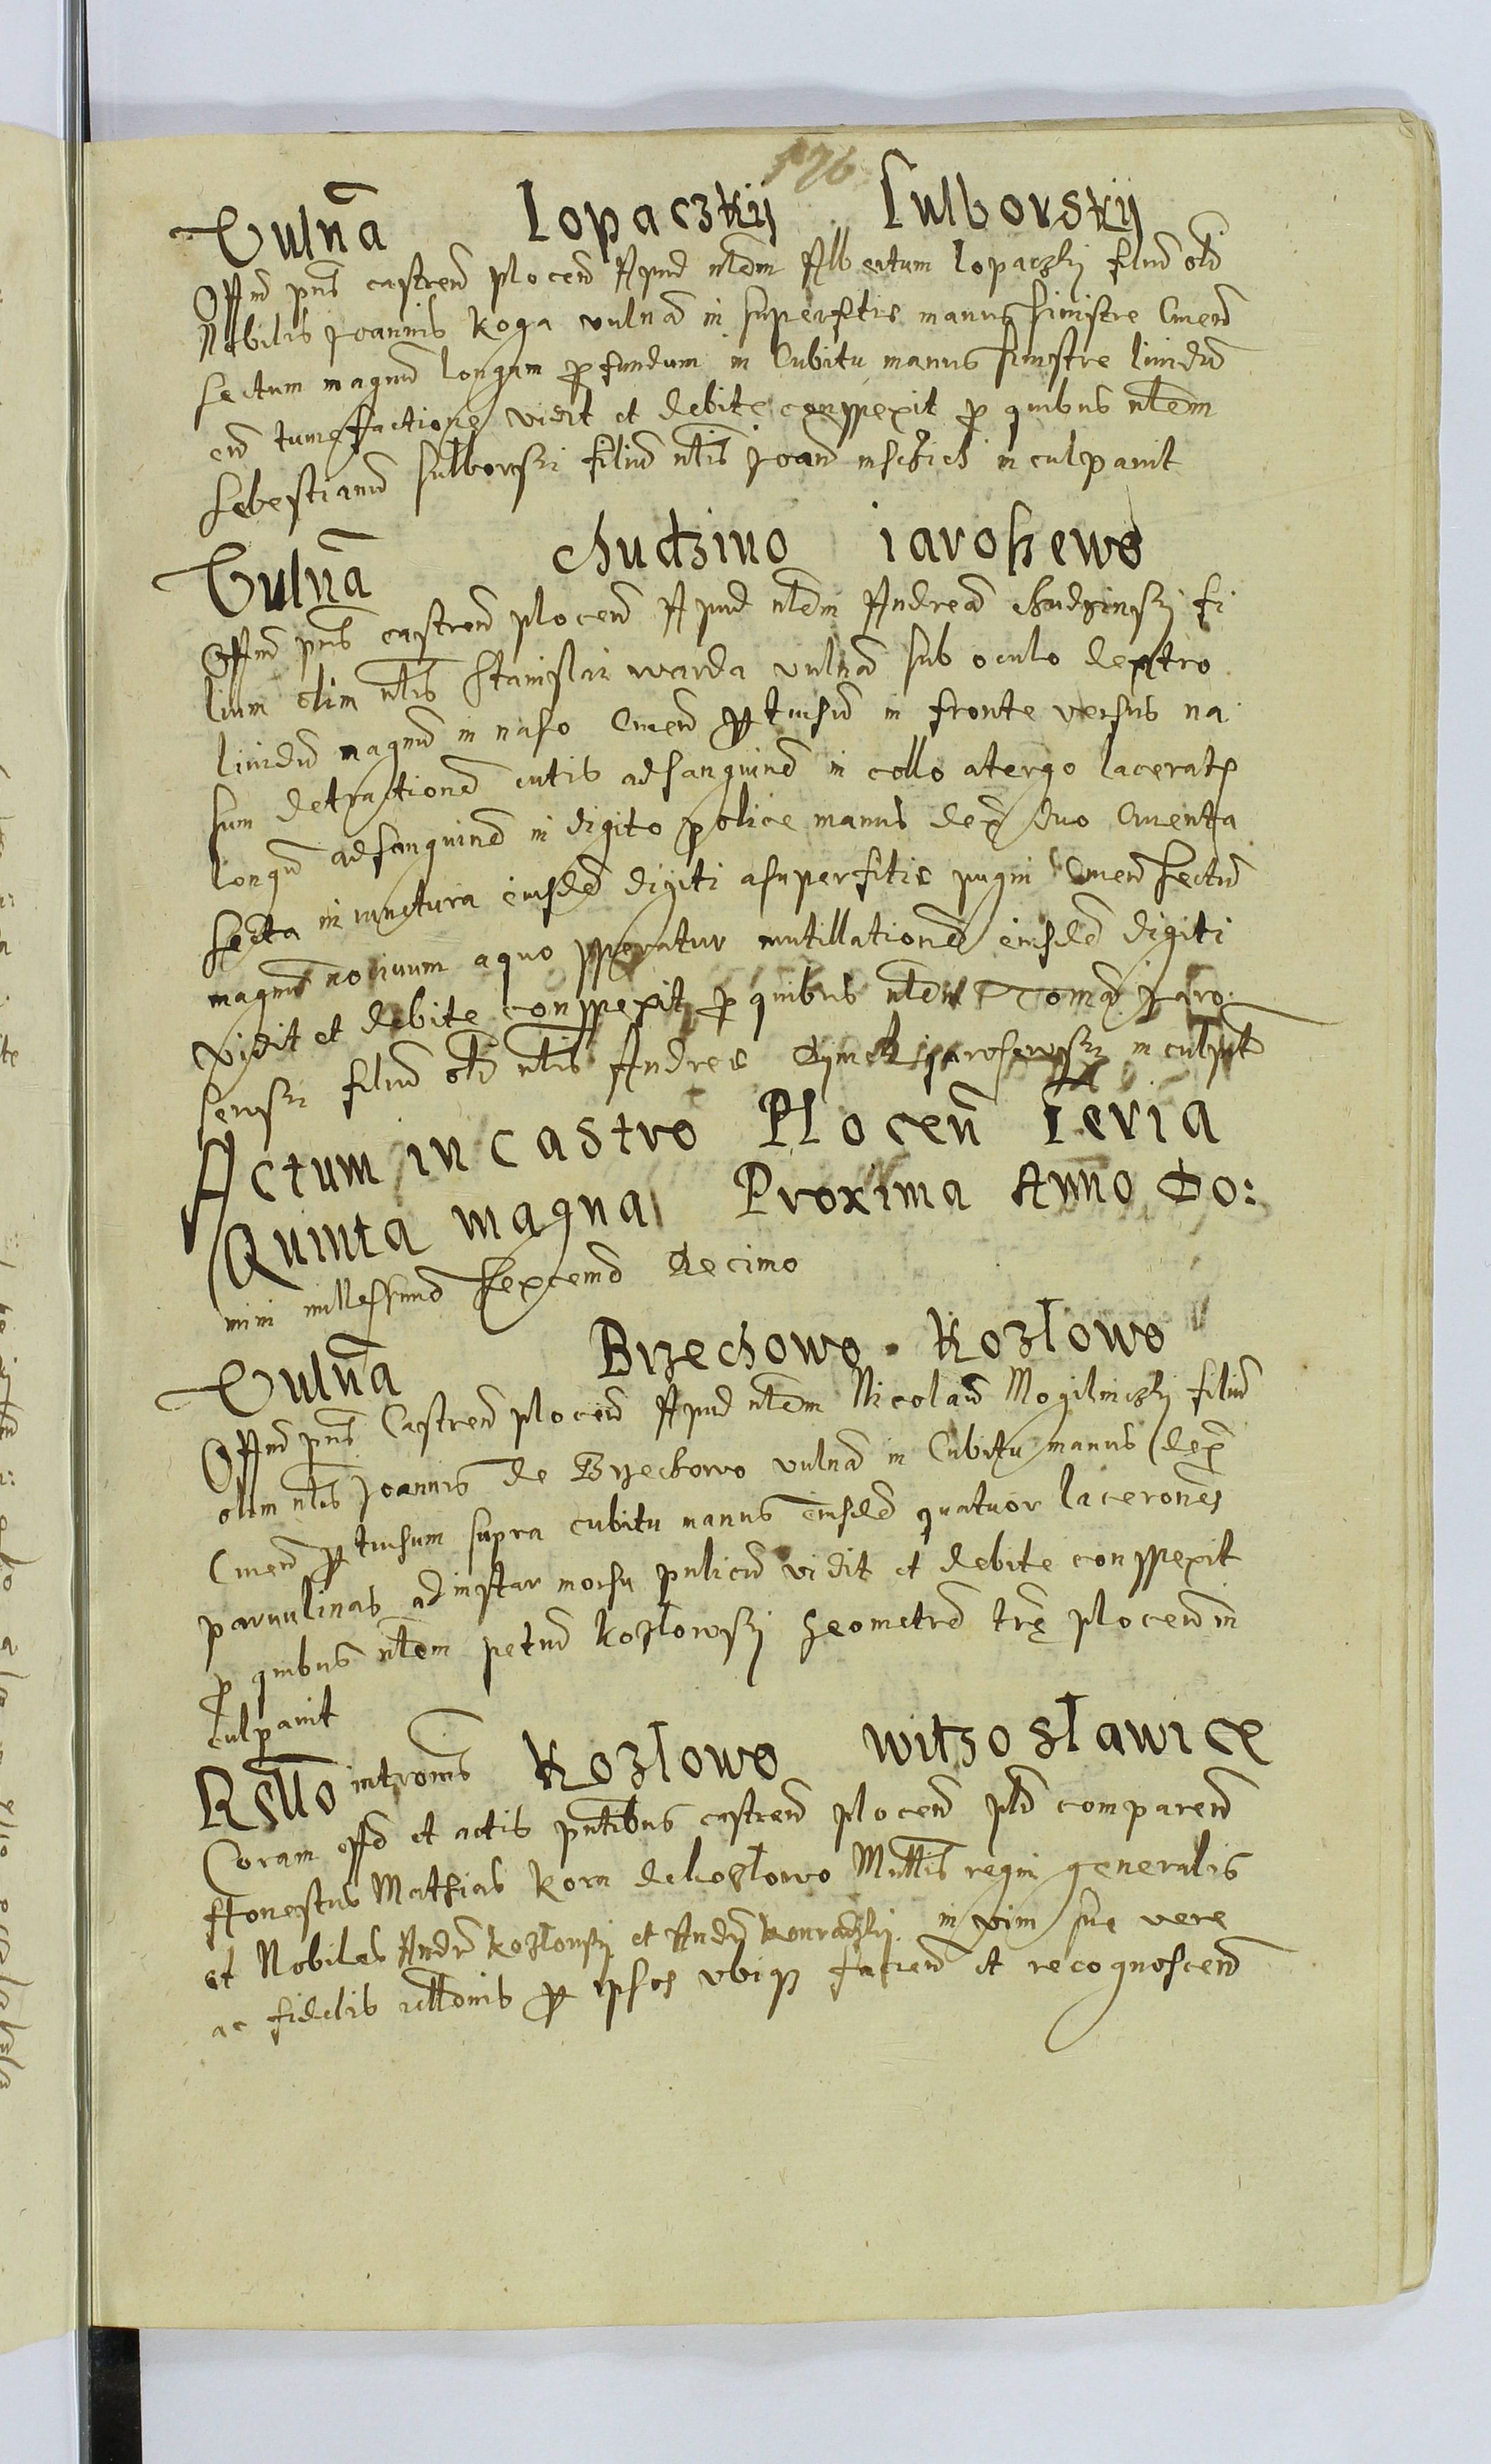 576
Vulnã Lopaczkij Sulborskij
Offm pns castren plocen Apud nlem Albertum lopaczkj filiu oli
Nobilis Joannis Koga vulna in superfitie manus sinistre Cruen
sectum magnu longum profundum in Cubitu manus sinistre liuidu
cu tumefactione vidit et debite conspexit pro quibus nlem
sebestianu sulborski filiu nlis Joan inculpauit
Vulnã chudzino iaroszewo
Offm pns castren plocen Apud nlem Andrea chudzinskj fi
lium olim nlis Stanislai warda vulna sub oculo dextro
liuidu magnu in naso Cruen pertusu in fronte versus na
sum detractione cutis ad sanguine in collo atergo lacerat
longu ad sanguine in digito police manus dex duo Cruenta
secta in iunctura eiusde digiti asuperfitie pugni Cruen sectu
magnu nociuum aquo speratur mutillatione eiusde digiti
vidit et debite conspexit pro quibus nlem Toma Jaro
sewski filiu oli nlis Andree iarosewski inculpat
Actum in castro Plocen̄ Feria
Quinta magna Proxima Anno Do:
mini millessimo sexcemo decimo
Vulnã Brzechowo . Kozłowo
Offm pns Castren plocen Apud nlem Nicolau Mogilniczkj filiu
olim nlis Joannis de Brzechowo vulna in Cubitu manus dex
Cruen pertusum supra cubitu manus eiusde quatuor lacerones
paruulinas ad instar morsu pulicu vidit et debite conspexit
pro quibus nlem petru kozłowskj geometre trę plocen in
culpauit
Rello intromis Kozłowo witzosławice
Coram offo et actis pntibus castren plocen pls comparen
Honestus Mathias kora de kozłowo Mnllis regni generalis
et Nobiles Andr kozłowskj et Andr konradzkij in vim suę vere
ac fidelis rellonis per ipsos vbiqz facien et recognoscen